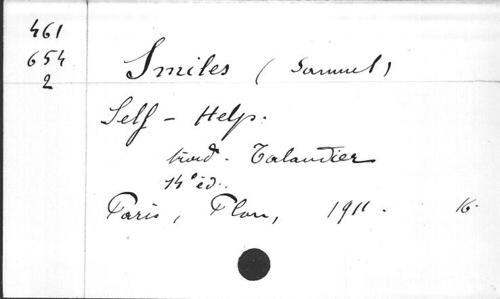 461
654
2
Smiles (Samuel)
Self-Help.
trad. Talandier
14e éd.
Paris, Plon, 1911. 16.